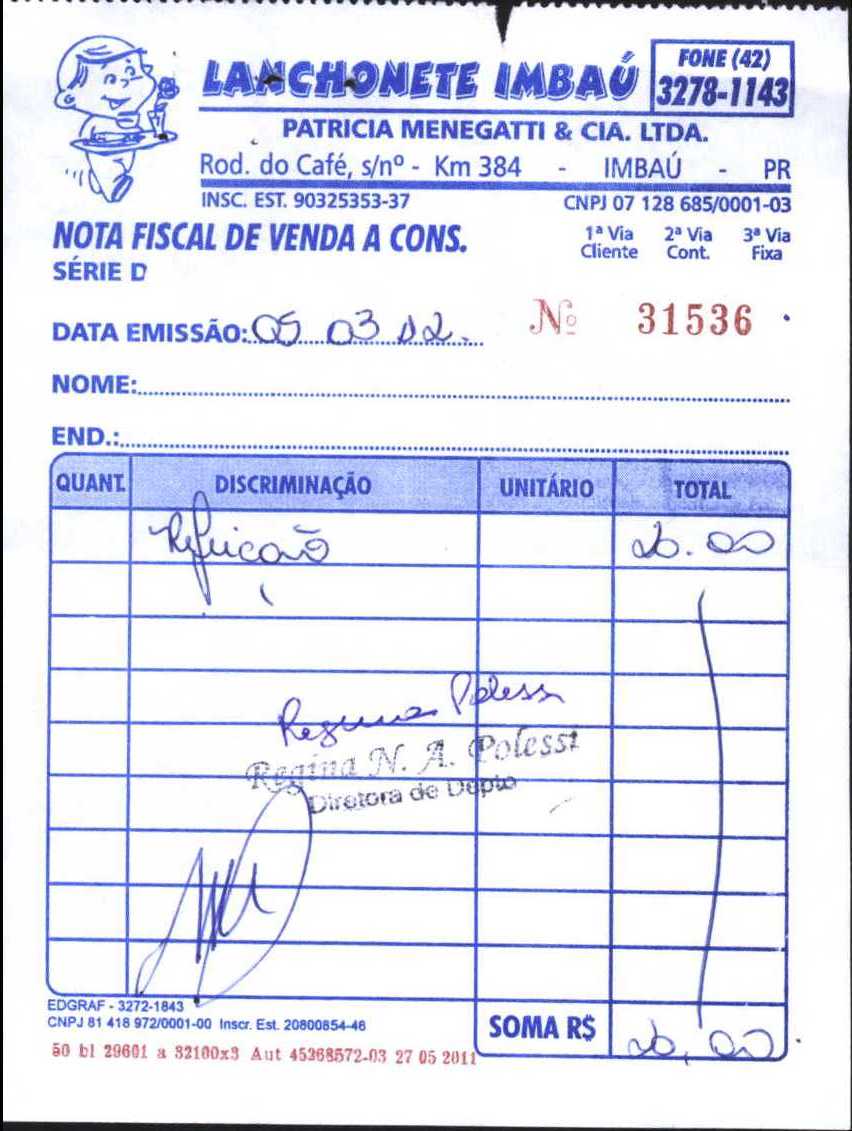 LANCHONETE IMBAÚ
FONE (42)
3278-1143
PATRICIA MENEGATTI & CIA. LTDA.
Rod. do Café, s/nº - Km 384 - IMBAÚ - PR
INSC. EST. 90325353-37 CNPJ 07 128 685/0001-03
NOTA FISCAL DE VENDA A CONS.
SÉRIE D
1ª Via Cliente 2ª Via Cont. 3ª Via Fixa
DATA EMISSÃO: 05 03 12. Nº 31536
NOME:
END.:
QUANT. DISCRIMINAÇÃO UNITÁRIO TOTAL
Refeicão 20.00
Regina Polessi
Regina N. A. Polessi
Diretora de Depto
EDGRAF - 3272-1843
CNPJ 81 418 972/0001-00 Inscr. Est. 20800854-46
SOMA R$ 20,00
50 bl 29601 a 32100x3 Aut 45368572-03 27 05 2011